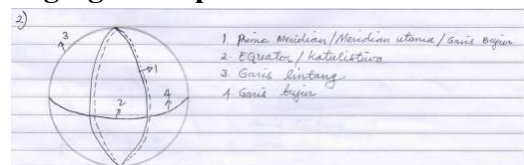 2)
3
1
2
4
1. Prime Meridian/Meridian utama/Garis Bujur
2. Equator/katulistiwa
3 Garis lintang
4. Garis bujur